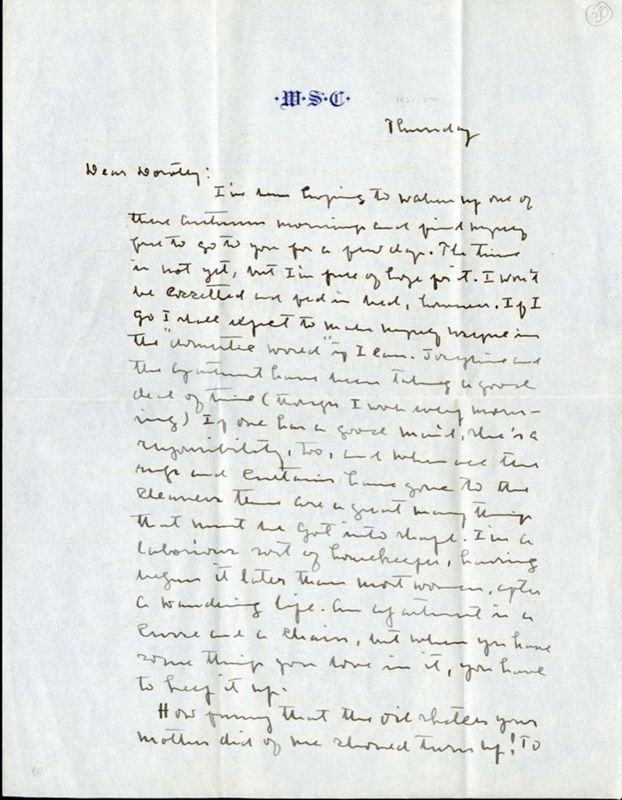 20
·W·S·C·
Thursday
Dear Dorothy:
I've been hoping to waken up one of
these autumn mornings and find myself
free to go to you for a few days. The time
is not yet, but I'm full of hope for it. I won't
be cossetted and fed in bed, however. If I
go I shall expect to make myself useful in
the "domestic world" if I can. Josephine and
the apartment have been taking a good
deal of time (though I work every morn-
ing) If one has a good maid, she's a
responsibility, too, and when all the
rugs and curtains have gone to the
cleaners there are a great many things
that must be got into shape. I'm a
laborious sort of homekeeper, having
begun it later than most women, after
a wandering life. An apartment is a
curse and a chain, but when you have
some things you love in it, you have
to keep it up.
How funny that the oil sketch your
mother did of me should turn up! To